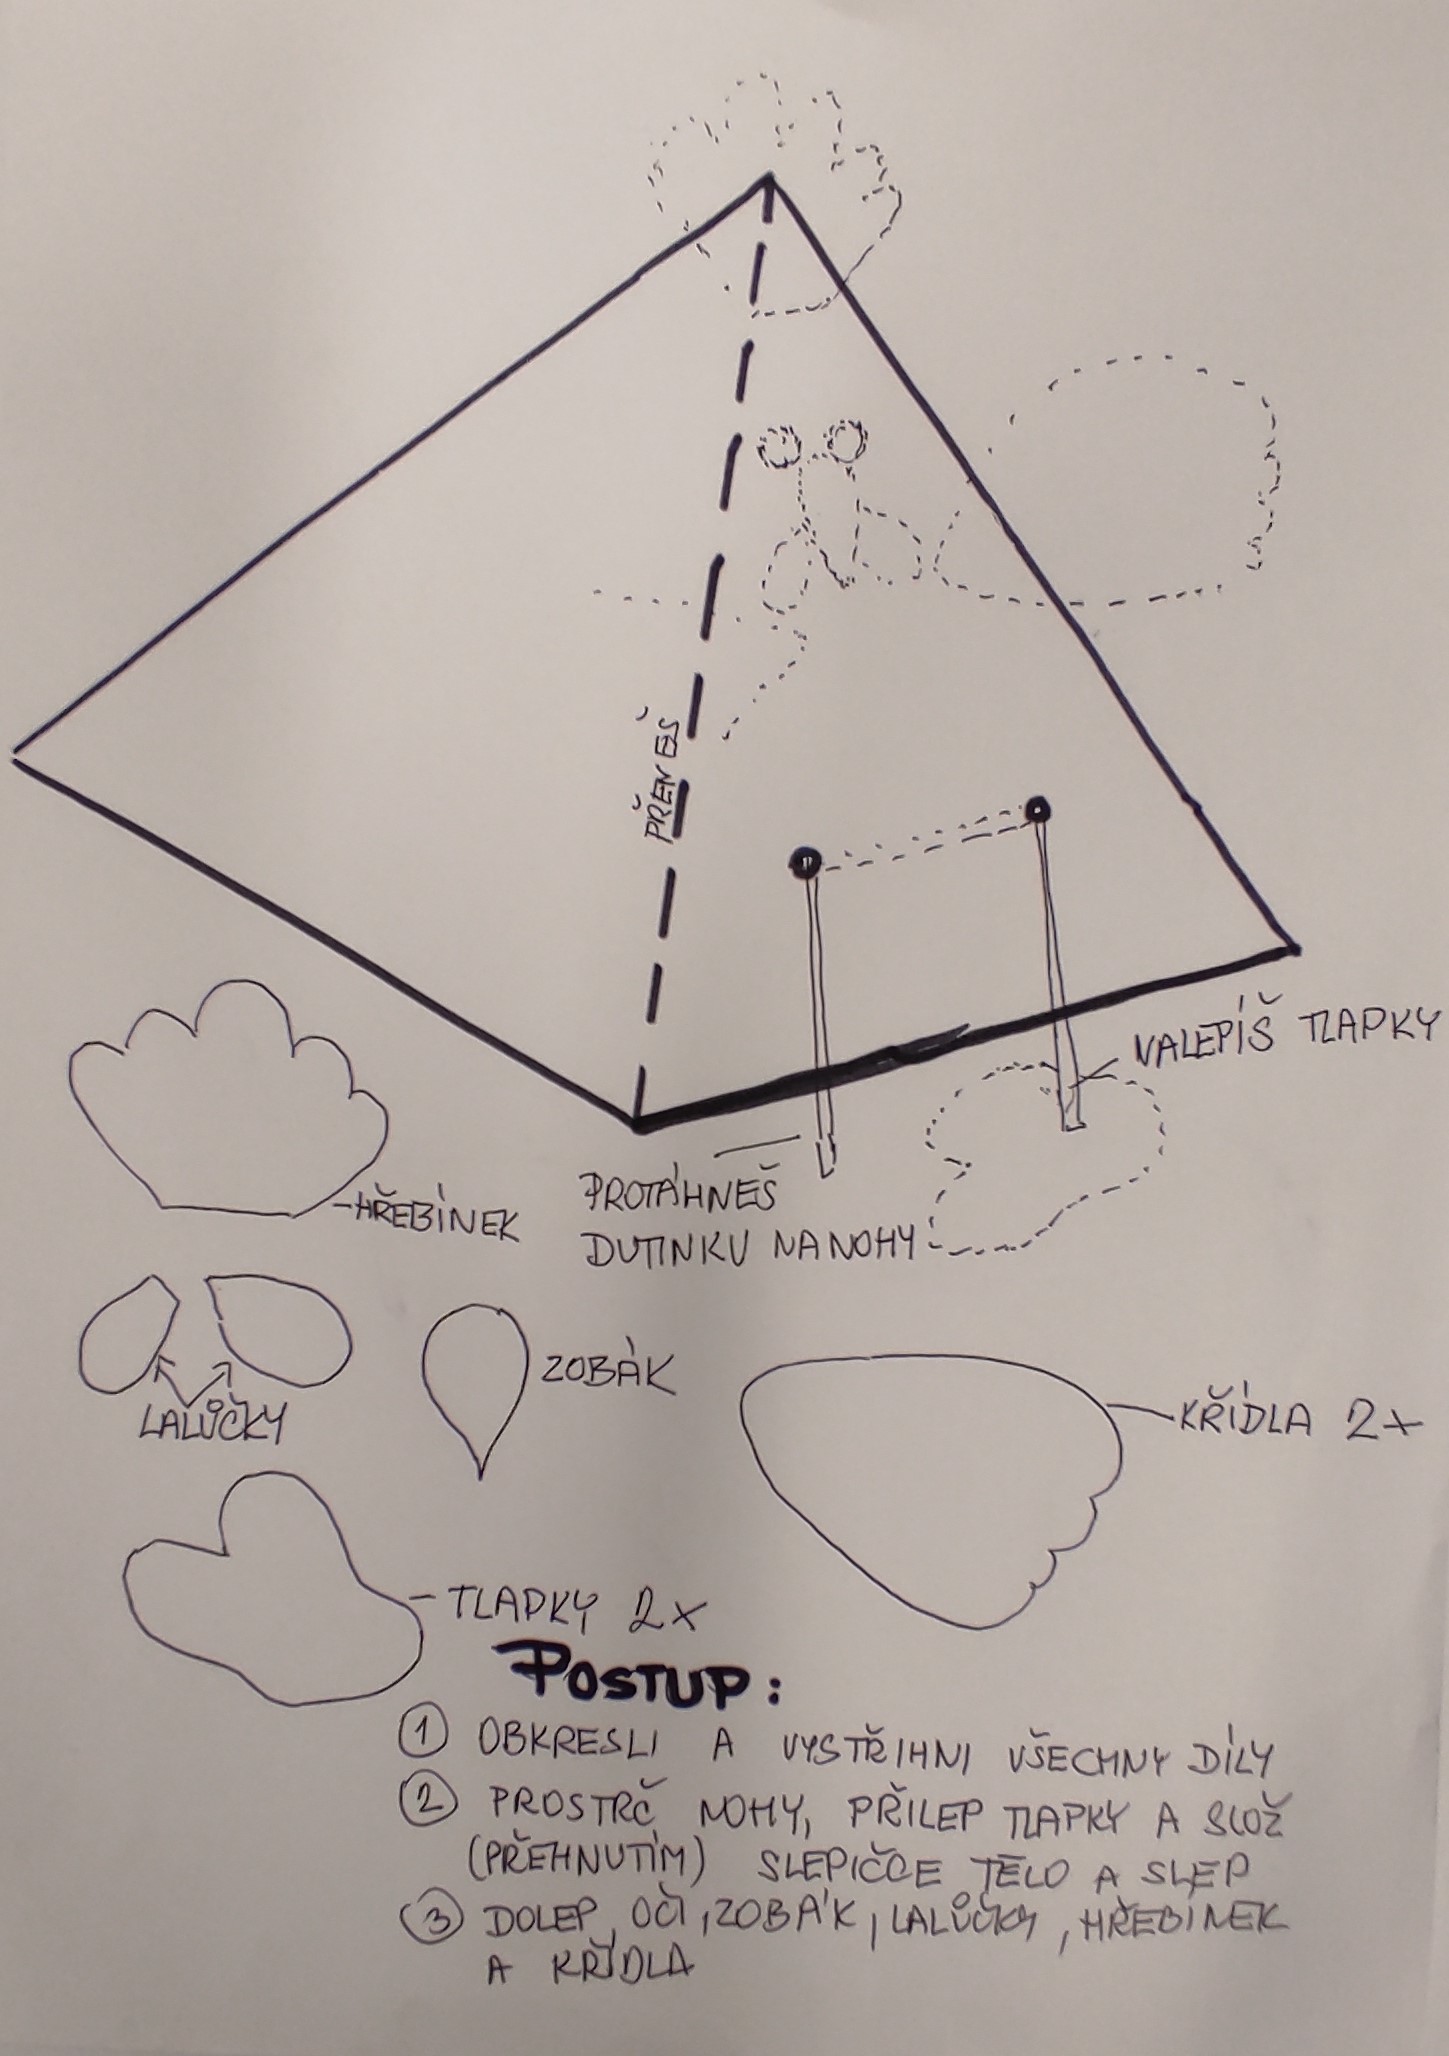 PŘEHNEŠ
VALEPÍŠ TLAPKY
PROTÁHNEŠ
DUTINKU NA NOHY
HŘEBÍNEK
LALŮČKY
ZOBÁK
KŘÍDLA 2x
TLAPKY 2x
POSTUP:
1 OBKRESLI A VYSTŘIHNI VŠECHNY DÍLY
2 PROSTRČ NOHY, PŘILEP TLAPKY A SLOŽ
(PŘEHNUTÍM) SLEPIČCE TĚLO A SLEP
3 DOLEP OČI, ZOBÁK, LALŮČKY, HŘEBÍNEK
A KŘÍDLA